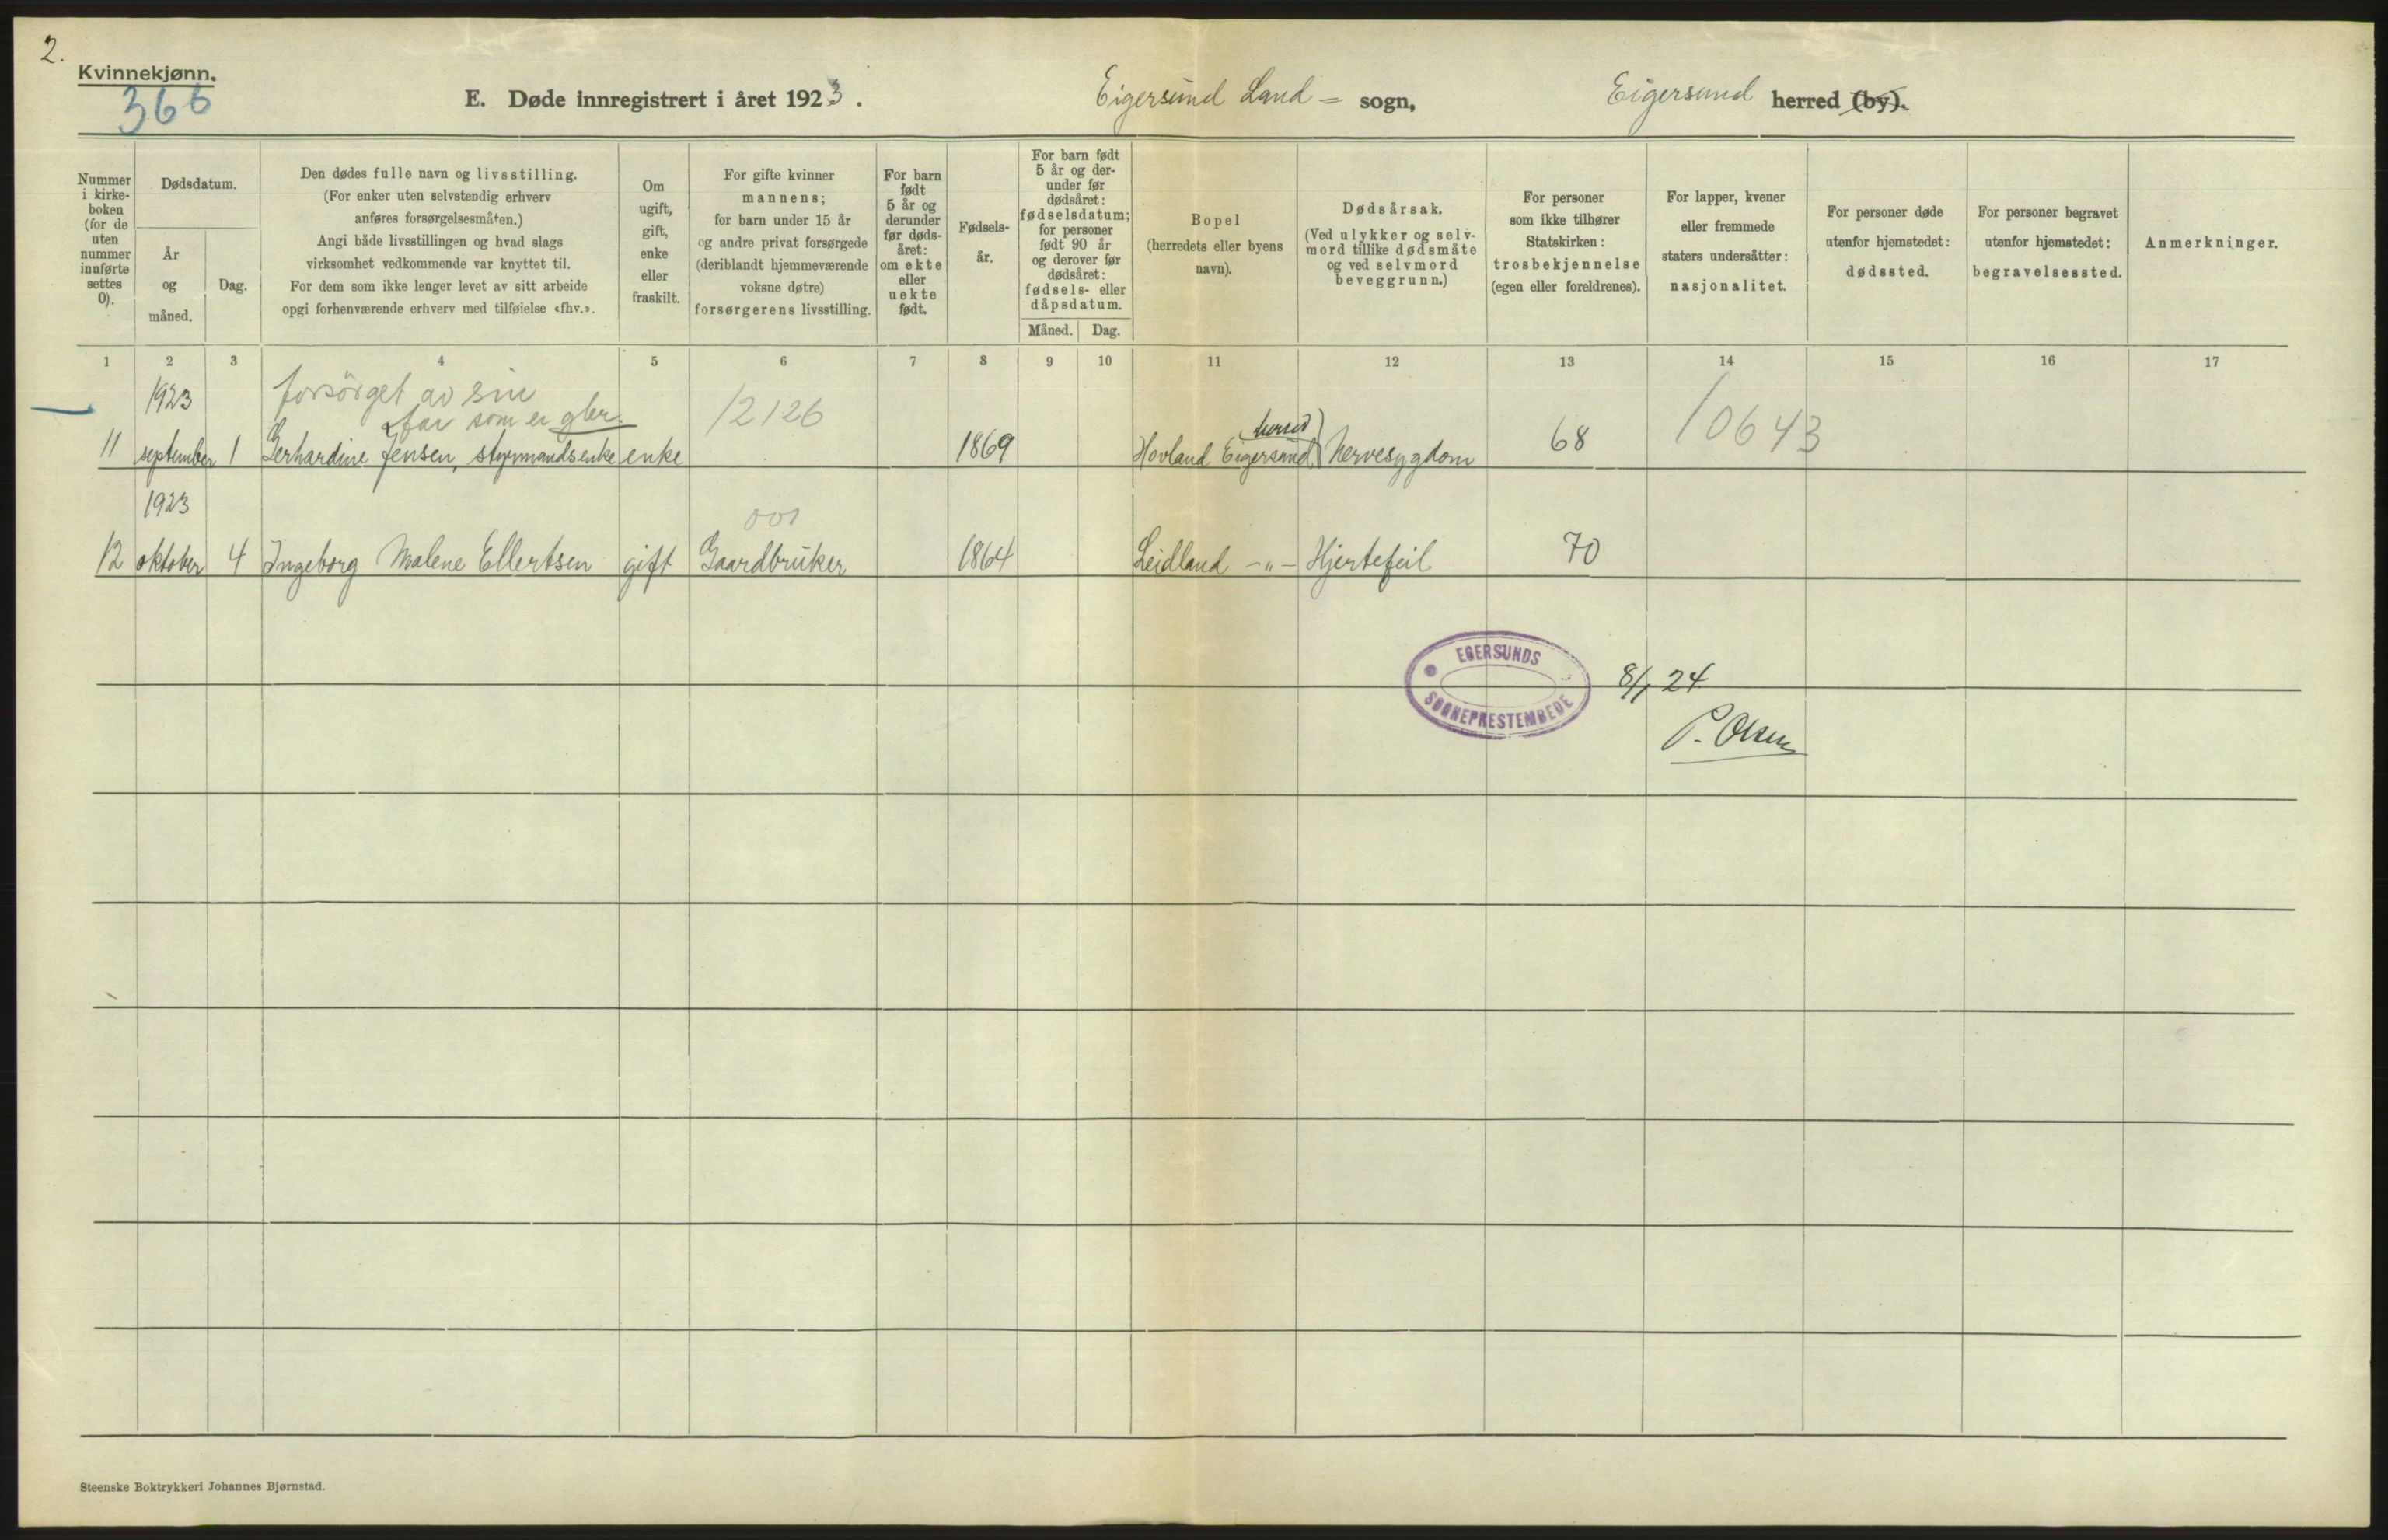 2.
Kvinnekjønn.
366
E. Døde innregistrert i året 1923.
Eigersund Land = sogn,
Eigersund herred (by).
Nummer
i kirke-
boken
(for de
uten
nummer
innførte
settes
0).
Dødsdatum.
År
og
måned.
Dag.
Den dødes fulle navn og livsstilling.
(For enker uten selvstendig erhverv
anføres forsørgelsesmåten.)
Angi både livsstillingen og hvad slags
virksomhet vedkommende var knyttet til.
For dem som ikke lenger levet av sitt arbeide
opgi forhenværende erhverv med tilføielse «fhv.».
Om
ugift,
gift,
enke
eller
fraskilt.
For gifte kvinner
mannens;
for barn under 15 år
og andre privat forsørgede
(deriblandt hjemmeværende
voksne døtre)
forsørgerens livsstilling.
For barn
født
5 år og
derunder
før døds-
året:
om ekte
eller
uekte
født.
Fødsels-
år.
For barn født
5 år og der-
under før
dødsåret:
fødselsdatum;
for personer
født 90 år
og derover før
dødsåret:
fødsels- eller
dåpsdatum.
Måned.
Dag.
Bopel
(herredets eller byens
navn).
Dødsårsak.
(Ved ulykker og selv-
mord tillike dødsmåte
og ved selvmord
beveggrunn.)
For personer
som ikke tilhører
Statskirken:
trosbekjennelse
(egen eller foreldrenes).
For lapper, kvener
eller fremmede
staters undersåtter:
nasjonalitet.
For personer døde
utenfor hjemstedet:
dødssted.
For personer begravet
utenfor hjemstedet:
begravelsessted.
Anmerkninger.
1 2 3 4 5 6 7 8 9 10 11 12 13 14 15 16 17
1923 forsörget av sin
far som er gbr. 12126 herred 10643
11 september 1 Gerhardine Jensen, styrmandsenke enke 1869 Hovland Eigersund Nervesygdom 68
1923 001
12 oktober 4 Ingeborg Malene Ellertsen gift Gaardbruker 1864 Leidland -"- Hjertefeil 70
EGERSUNDS
SOGNEPRESTEMBEDE
8/1 24
P. Olsen
Steenske Boktrykkeri Johannes Bjørnstad.